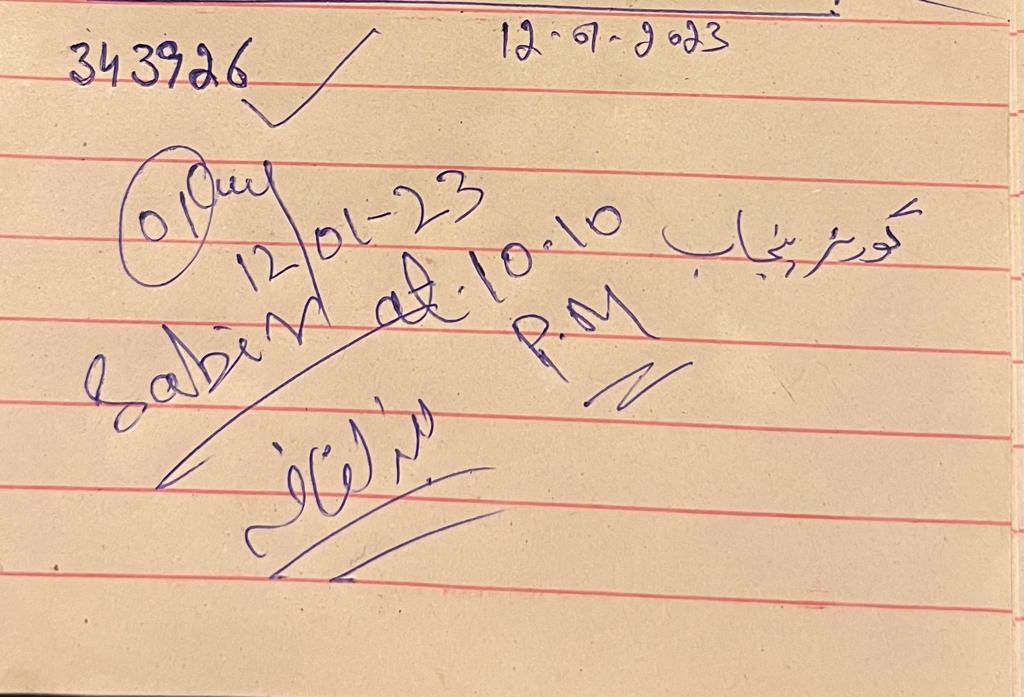 343926 12-01-2023
01
12/01-23
گورنر پنجاب
Sabir at 10.10
P.M
بند لفافہ